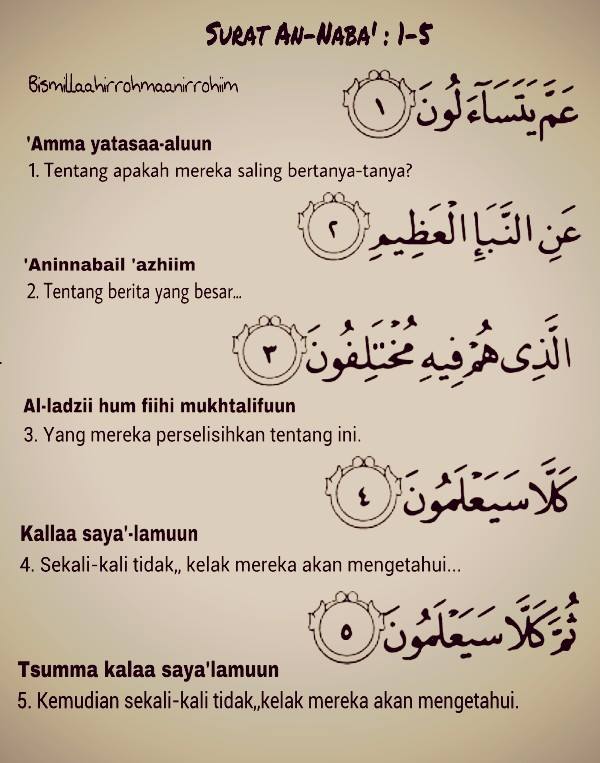 SURAT AN-NABA' : 1-5
Bismillaahirrohmaanirrohiim
عَمَّ يَتَسَآءَلُونَ ١
'Amma yatasaa-aluun
1. Tentang apakah mereka saling bertanya-tanya?
عَنِ النَّبَإِ الْعَظِيمِ ٢
'Aninnabail 'azhiim
2. Tentang berita yang besar...
الَّذِى هُمْ فِيهِ مُخْتَلِفُونَ ٣
Al-ladzii hum fiihi mukhtalifuun
3. Yang mereka perselisihkan tentang ini.
كَلَّا سَيَعْلَمُونَ ٤
Kallaa saya'-lamuun
4. Sekali-kali tidak,, kelak mereka akan mengetahui...
ثُمَّ كَلَّا سَيَعْلَمُونَ ٥
Tsumma kalaa saya'lamuun
5. Kemudian sekali-kali tidak,,kelak mereka akan mengetahui.